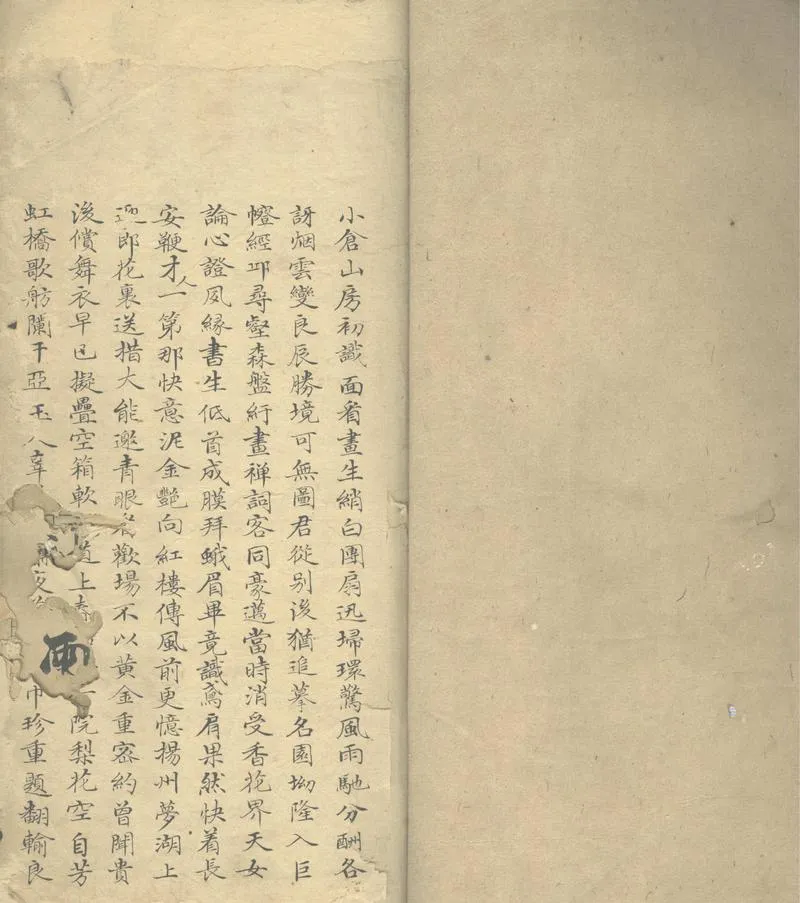 小倉山房初識面看畫生綃白團扇迅埽環驚風雨馳分酬各
訝烟雲變良辰勝境可無圖君從别後猶追摹名園坳隆入巨
幛經邛尋壑森盤紆畫禅詞客同豪邁當時消受香花界天女
論心證夙緣書生低首成膜拜蛾眉畢竟識鳶肩果然快着長
安鞭才人一第那快意泥金艷向紅樓傳風前更憶揚州夢湖上
迎郎花裏送措大能邀青眼看歡場不以黄金重密約曾聞貴
後償舞衣早已擬疊空箱軟 上 院梨花空自芳
虹橋歌舫闌干亞玉八 巾珍重題翻輸良
雨